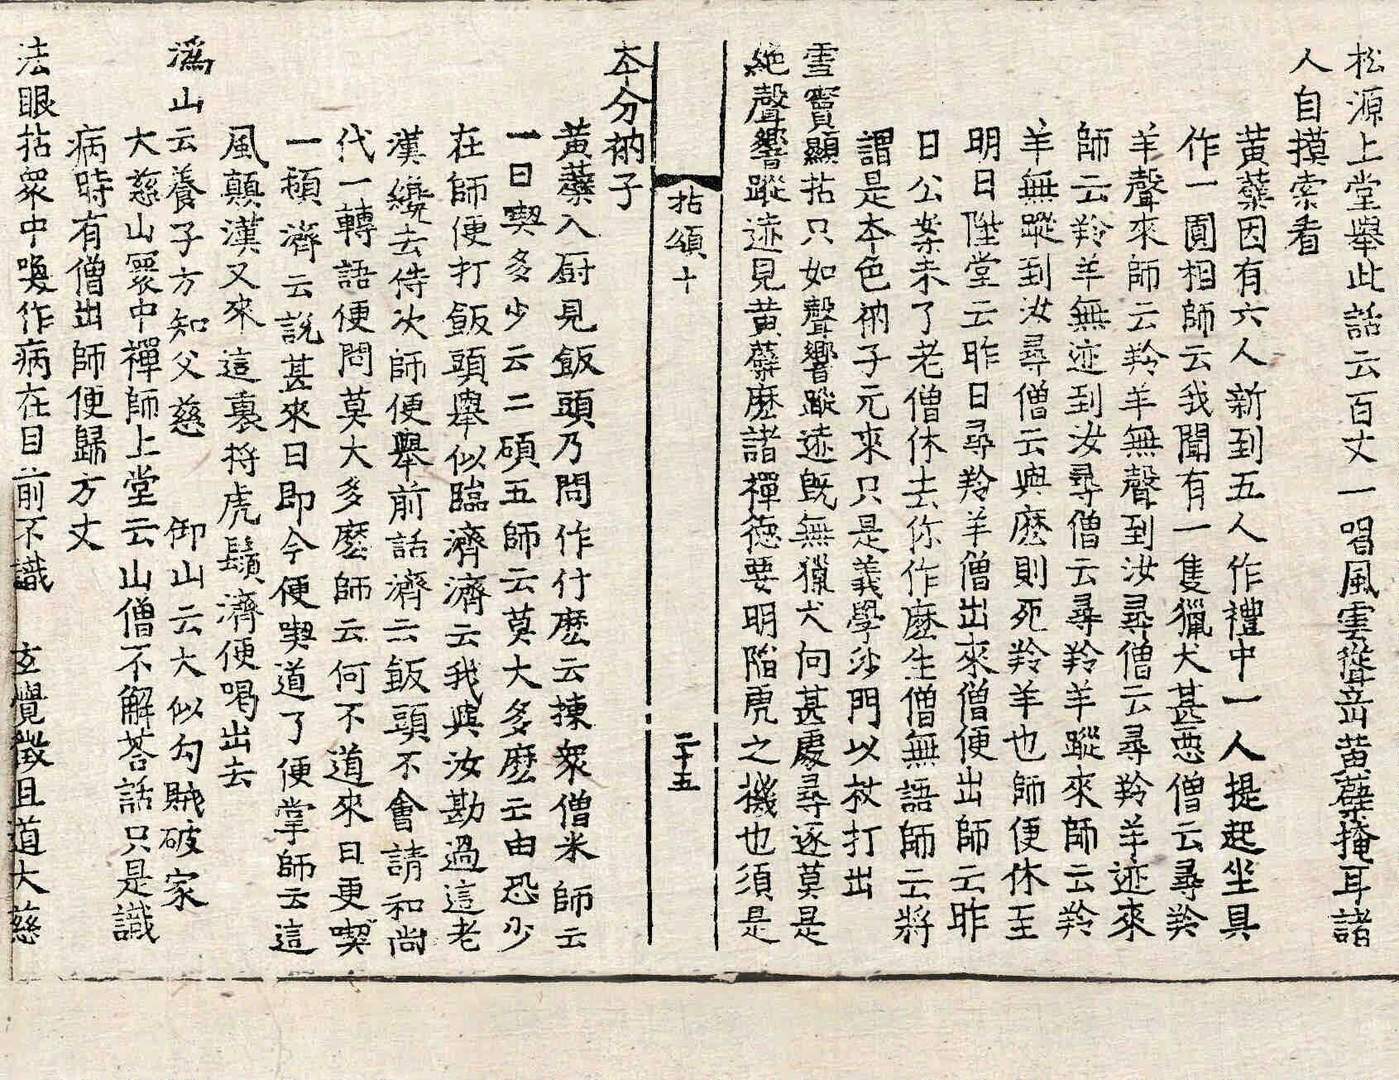 松源上堂舉此話云百丈一喝風雲聳黃蘗掩耳諸
人自摸索看
黃蘗因有六人新到五人作禮中一人提起坐具
作一圓相師云我聞有一隻獵犬甚惡僧云尋羚
羊聲來師云羚羊無聲到汝尋僧云尋羚羊迹來
師云羚羊無迹到汝尋僧云尋羚羊蹤來師云羚
羊無蹤到汝尋僧云與麽則死羚羊也師便休至
明日陞堂云昨日尋羚羊僧出來僧便出師云昨
日公案未了老僧休去你作麽生僧無語師云將
謂是本色衲子元來只是義學沙門以杖打出
雪竇顯拈只如聲響蹤迹旣無獵犬向甚處尋逐莫是
絶聲響蹤迹見黃蘗麽諸禪德要明陷虎之機也須是
本分衲子
拈頌十
二十五
黃蘗入厨見飯頭乃問作什麽云揀衆僧米師云
一日喫多少云二碩五師云莫大多麽云由恐少
在師便打飯頭舉似臨濟濟云我與汝勘過這老
漢纔去侍次師便舉前話濟云飯頭不會請和尚
代一轉語便問莫大多麽師云何不道來日更喫
一頓濟云說甚來日即今便喫道了便掌師云這
風顛漢又來這裏捋虎鬚濟便喝出去
潙山云養子方知父慈 仰山云大似勾賊破家
大慈山寰中禪師上堂云山僧不解荅話只是識
病時有僧出師便歸方丈
法眼拈衆中喚作病在目前不識 玄覺徵且道大慈